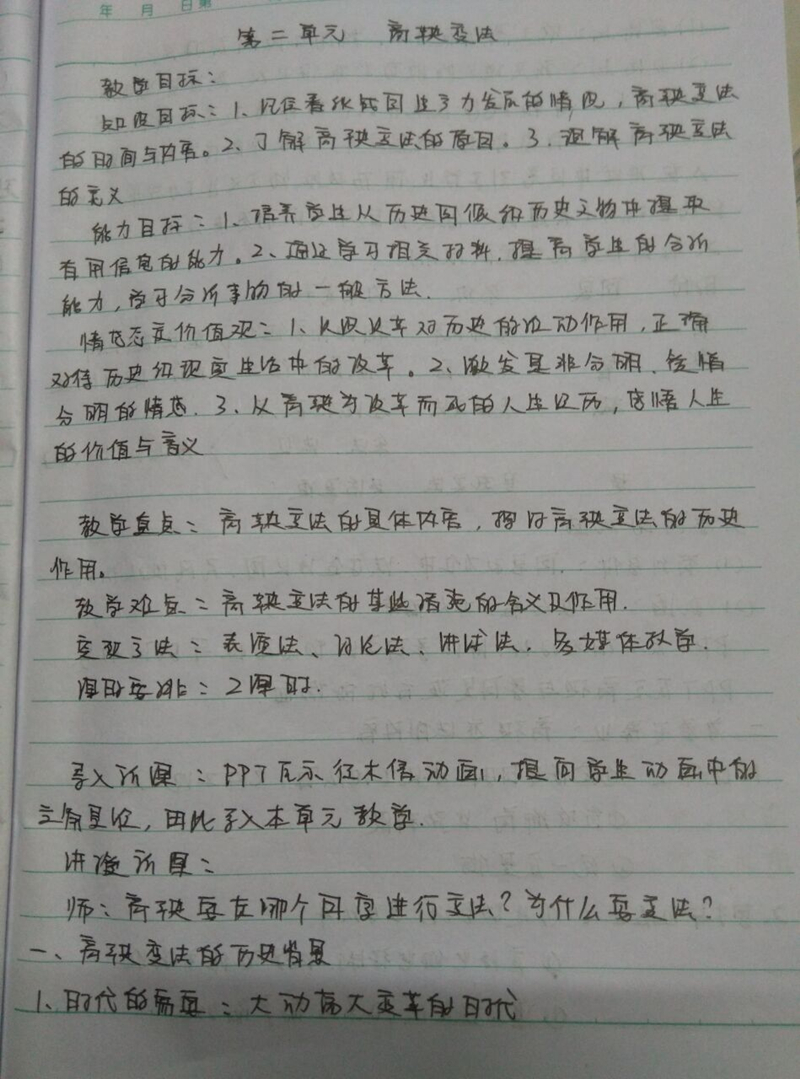 年 月 日 第
第二单元 商鞅变法
教学目标：
知识目标：1、记住春秋战国生产力发展的情况，商鞅变法
的时间与内容。2、了解商鞅变法的原因。3、理解商鞅变法
的意义
能力目标：1、培养学生从历史图像和历史文物中提取
有用信息的能力。2、通过学习相关材料，提高学生的分析
能力，学习分析事物的一般方法.
情感态度价值观：1、认识改革对历史的推动作用，正确
对待历史和现实生活中的改革。2、激发是非分明、爱憎
分明的情感.3、从商鞅为改革而死的人生经历，感悟人生
的价值与意义
教学重点：商鞅变法的具体内容，探讨商鞅变法的历史
作用。
教学难点：商鞅变法的某些措施的含义及作用.
法：表演法、讨论法、讲述法，多媒体教学.
课时安排：2课时.
导入新课：PPT展示徙木信动画，提问学生动画中的
，因此导入本单元教学.
讲授新课：
师：商鞅要在哪个国家进行变法？为什么要变法？
一、商鞅变法的历史背景
1、时代的需要：大动荡大变革的时代